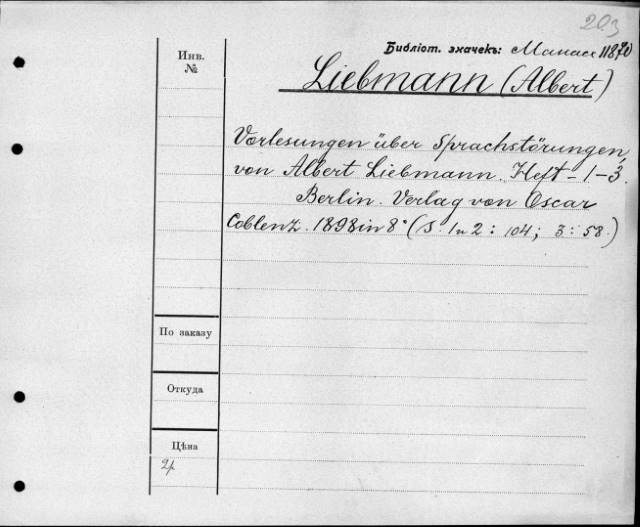 203
Библіот. значекъ: Манасс 11870
Инв.
№
Liebmann (Albert)
Vorlesungen über Sprachstörungen,
von Albert Liebmann. Heft - 1-3.
Berlin. Verlag von Oscar
Coblenz. 1898 in 8° (S. 1 u 2: 104; 3: 58.)
По заказу
Откуда
Цѣна
2р